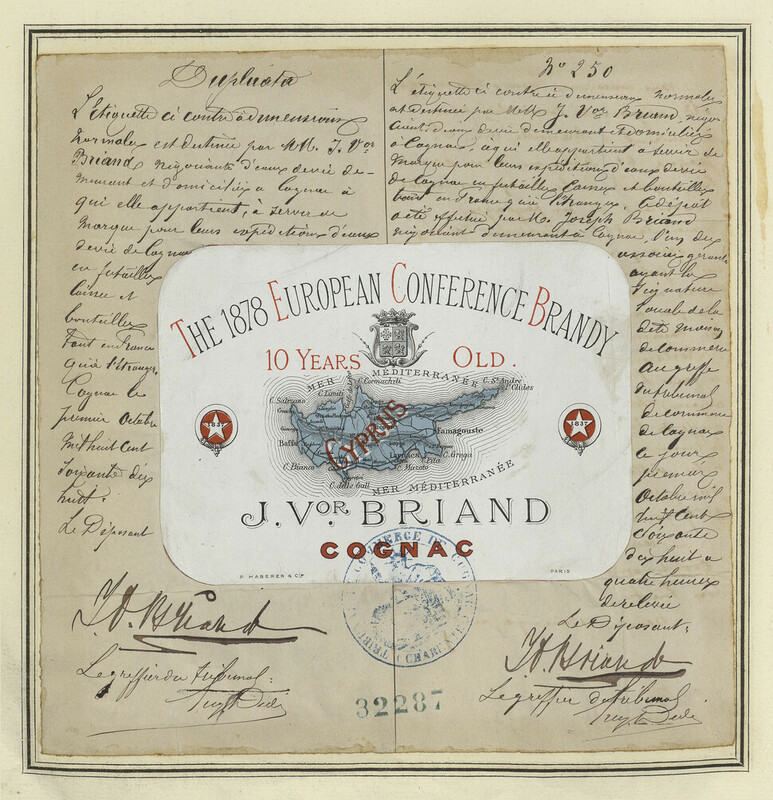 Duplicata
L'étiquette ci contre à dimensions
normales est destinée par MM. J. Vor
Briand négociants d'eaux de vie de-
meurant et domiciliés à Cognac à
qui elle appartient, à servir de
marque pour leurs expéditions d'eaux
de vie de Cognac
en futailles
caisses et
bouteilles
tant en France
qu'à l'étranger.
Cognac le
premier octobre
mil huit cent
soixante dix
huit.
Le Déposant
J. V. Briand
Le greffier du Tribunal:
No 250
L'étiquette ci contre à dimensions normales
est destinée par MM. J. Vor Briand, négo-
ciants d'eaux de vie demeurant et domiciliés
à Cognac, à qui elle appartient à servir de
marque pour leurs expéditions d'eaux de vie
de Cognac en futailles caisses et bouteilles
tant en France qu'à l'étranger. Le dépôt
a été effectué par M. Joseph Briand
négociant demeurant à Cognac, l'un des
associés gérants
ayant la
signature
sociale de la
dite maison
de commerce
au greffe
du tribunal
de commerce
de Cognac
ce jour
premier
octobre mil
huit cent
soixante
dix huit à
quatre heures
de relevée
Le Déposant:
J. V. Briand
Le greffier du Tribunal
THE 1878 EUROPEAN CONFERENCE BRANDY
10 YEARS OLD.
MER MÉDITERRANÉE
C. Cormachiti
C. St. André
I. Clides
C. Salizano
C. Limiti
CYPRUS
Famagouste
Baffa
C. Grega
C. Pila
C. Bianco
C. Mazoto
C. delle Gatt
MER MÉDITERRANÉE
1837
1837
J. VOR. BRIAND
COGNAC
P. HABERER & Cie
PARIS
TRIBUNAL DE COMMERCE DE COGNAC
32287